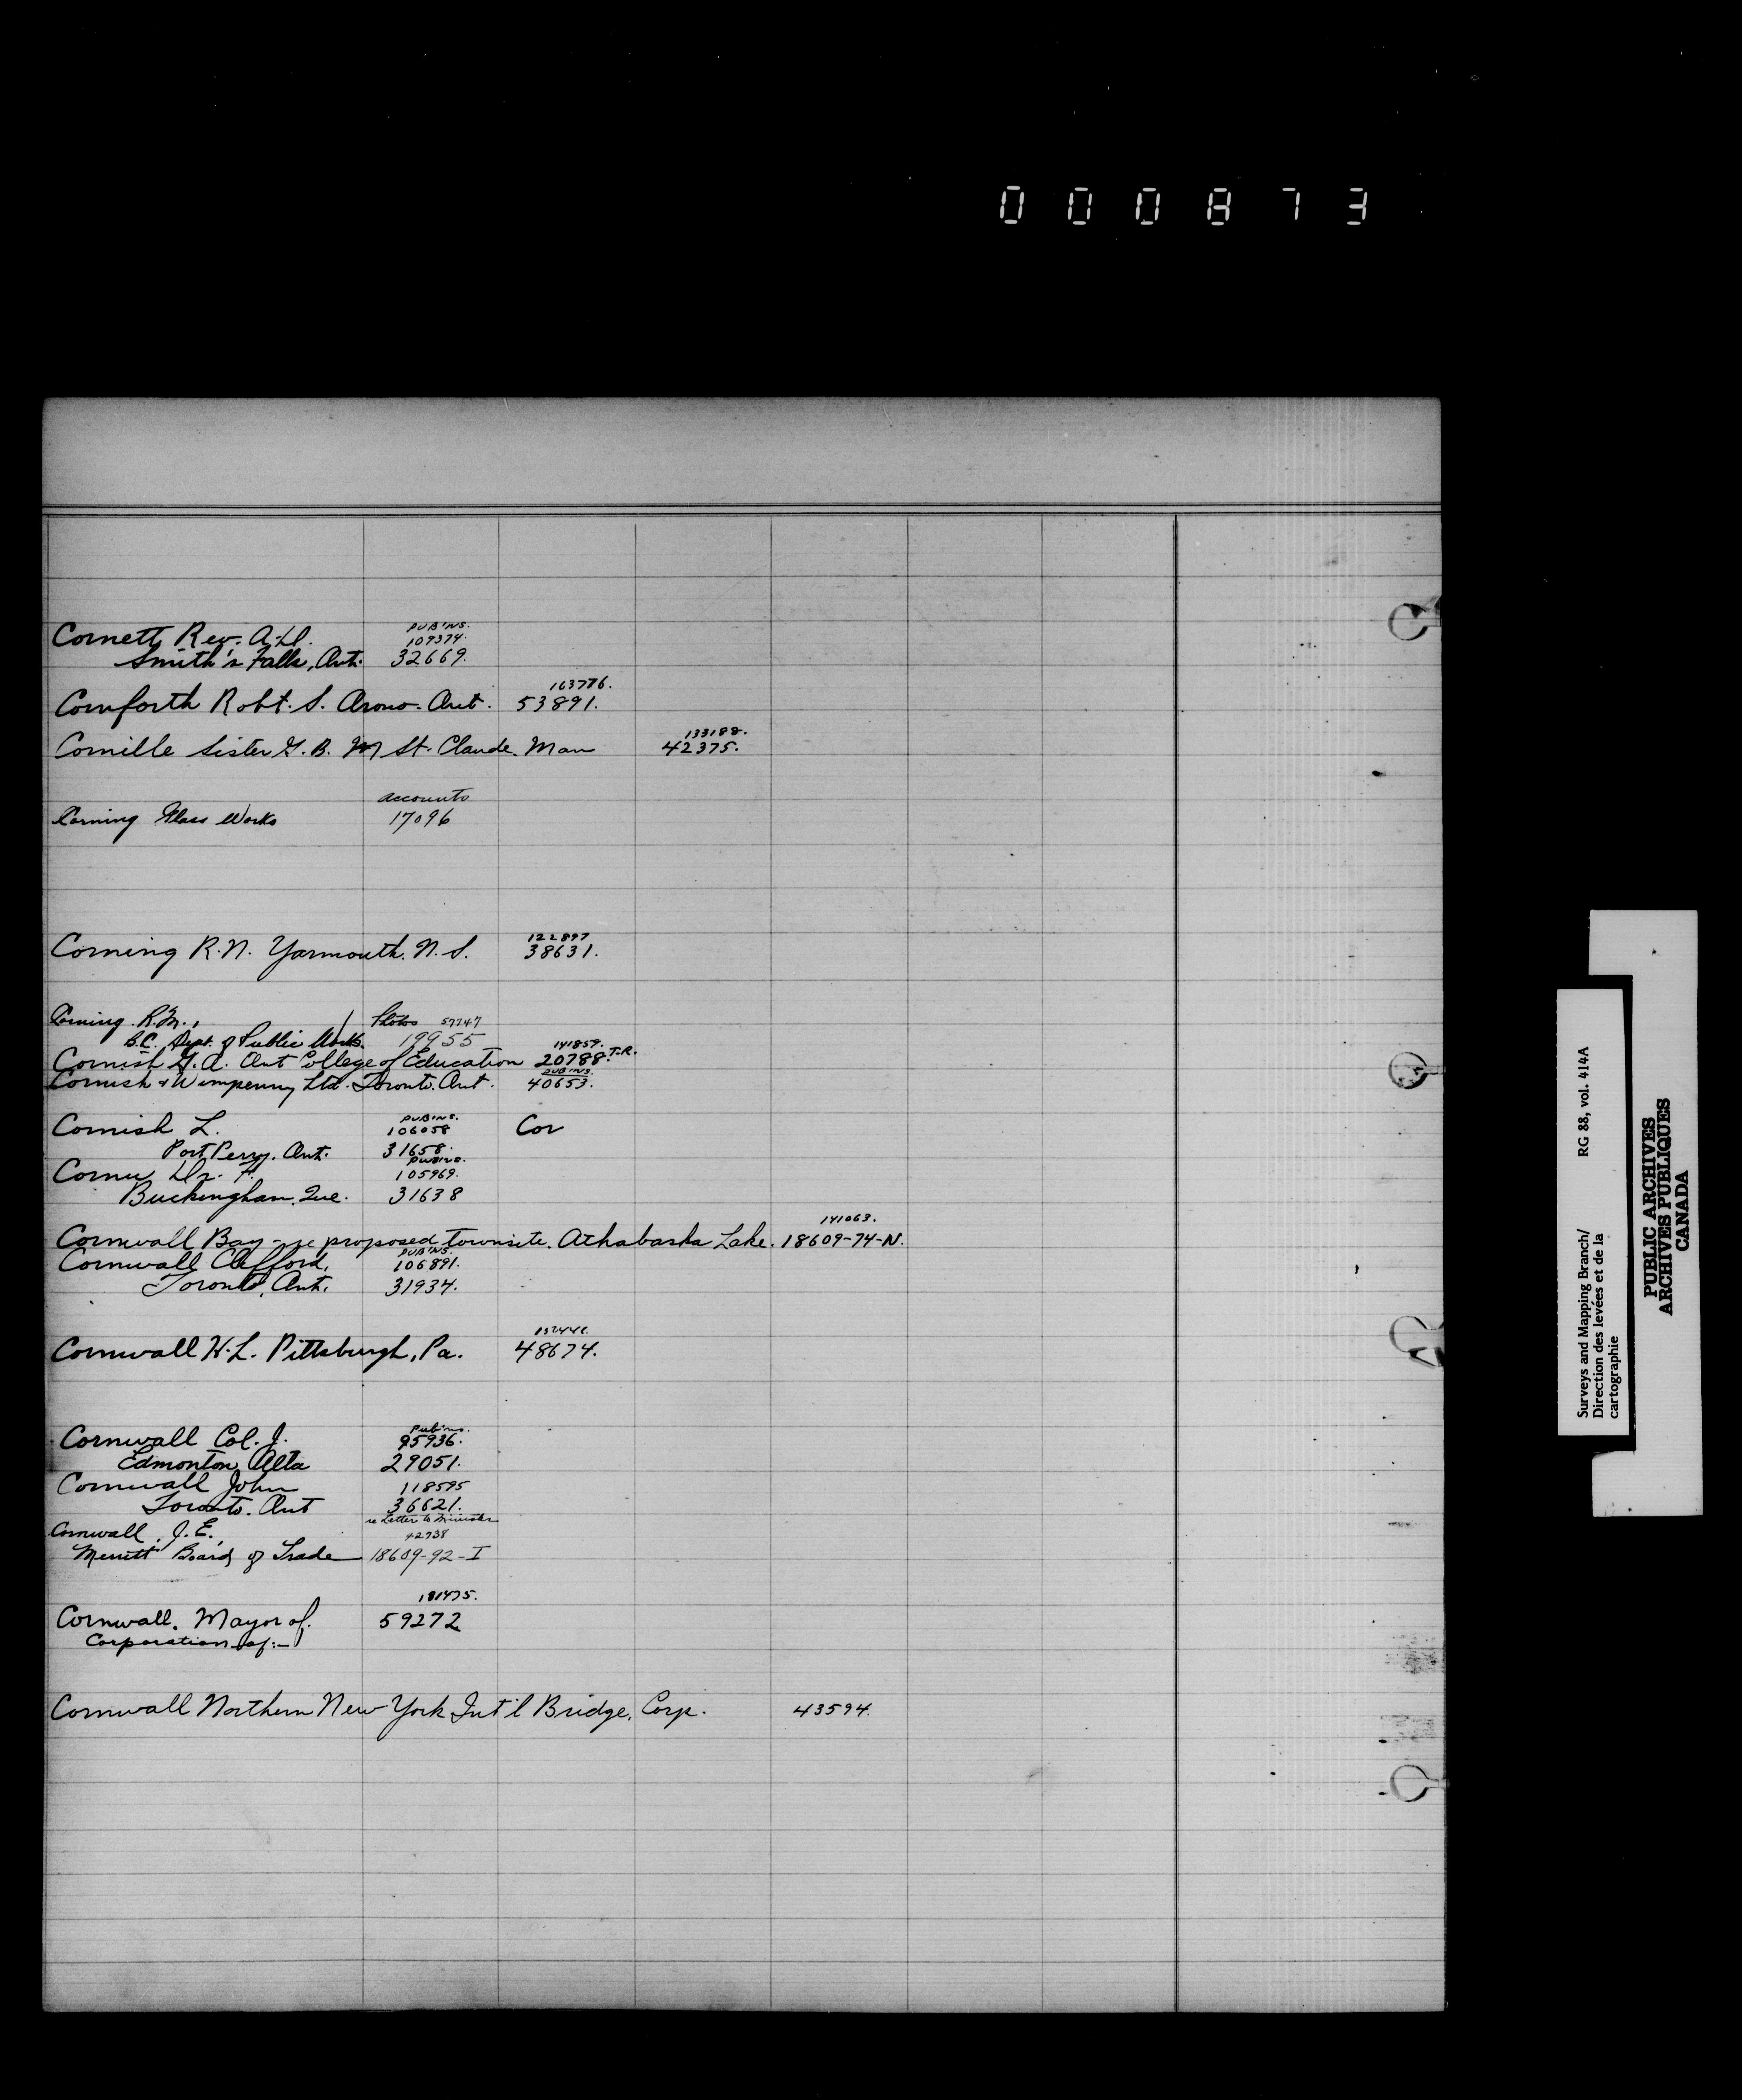 000873
PUB'NS.
Cornett, Rev. A.D. 109374.
Smith's Falls, Ont. 32669.
163776.
Cornforth Robt. S. Orono. Ont. 53891.
133188.
Cornille Sister G. B. M St. Claude. Man 42375.
accounts
Corning Glass Works 17096
122897
Corning R.N. Yarmouth. N.S. 38631.
Corning R.M., Photos 57747
B.C. Dept. of Public Works. 19955
141859.
Cornish G.A. Ont College of Education 20788. T-R.
PUB'NS.
Cornish & Wimpenny Ltd. Toronto. Ont. 40653.
PUB'NS.
Cornish L. 106058 Cor
Port Perry. Ont. 31658.
PUB'NS.
Cornu Dr. F. 105969.
Buckingham. Que. 31638
141063.
Cornwall Bay - re proposed townsite. Athabaska Lake. 18609-74-N.
PUB'NS.
Cornwall Clifford, 106891.
Toronto, Ont. 31934.
Cornwall H.L. Pittsburgh, Pa. 48674.
Pub'ns.
Cornwall Col. J. 95936.
Edmonton, Alta 29051.
Cornwall John 118595
Toronto. Ont 36621.
re Letter to Minister
Cornwall, J.E., 42938
Merritt Board of Trade 18609-92-I
181475.
Cornwall. Mayor of. 59272
Corporation of:-
Cornwall Northern New York Int'l Bridge, Corp. 43594.
Surveys and Mapping Branch/ RG 88, vol. 414A
Direction des levées et de la
cartographie
PUBLIC ARCHIVES
ARCHIVES PUBLIQUES
CANADA